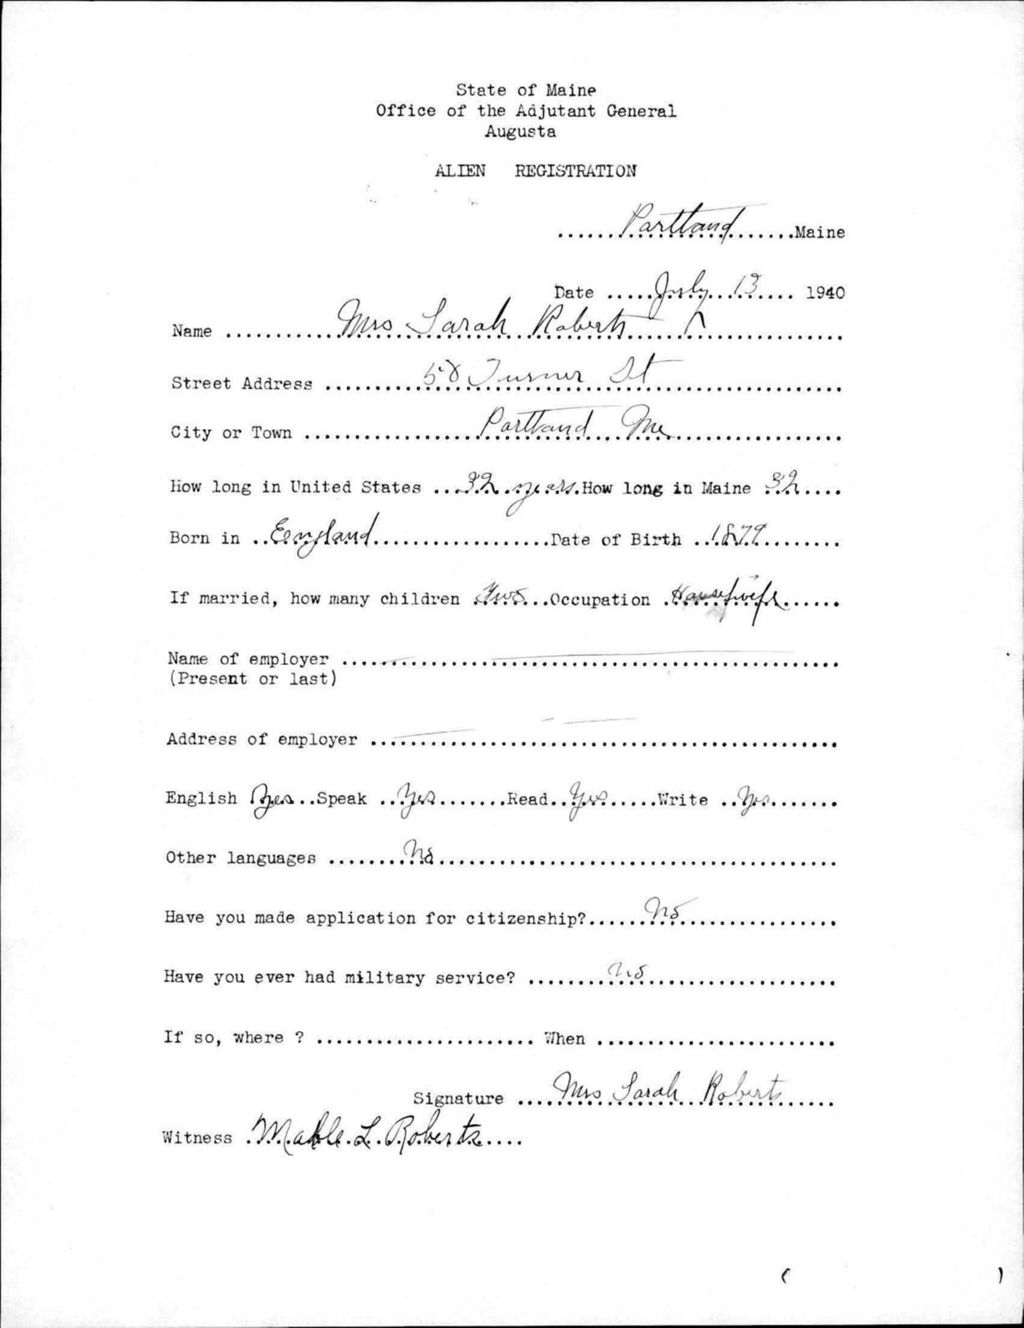 State of Maine
Office of the Adjutant General
Augusta
ALIEN REGISTRATION
......Portland......Maine
Date .....July 13.... 1940
Name ..........Mrs Sarah Roberts..........
Street Address ..........58 Turner St..........
City or Town ..........Portland Me..........
How long in United States ...32 years.How long in Maine 32....
Born in ..England..........Date of Birth ..1879.........
If married, how many children Two...Occupation .Housewife......
Name of employer ..........
(Present or last)
Address of employer ..........
English Yes..Speak ..Yes.......Read..Yes.....Write ..Yes.......
Other languages ........No..........
Have you made application for citizenship?......No..........
Have you ever had military service? ........No..........
If so, where ? .......... When ..........
Signature ....Mrs Sarah Roberts......
Witness .Mable L. Roberts....